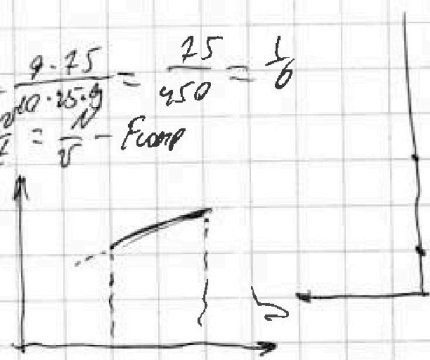 9·75 / 20·25·9 = 75 / 450 = 1/6
= N/v - Fсопр